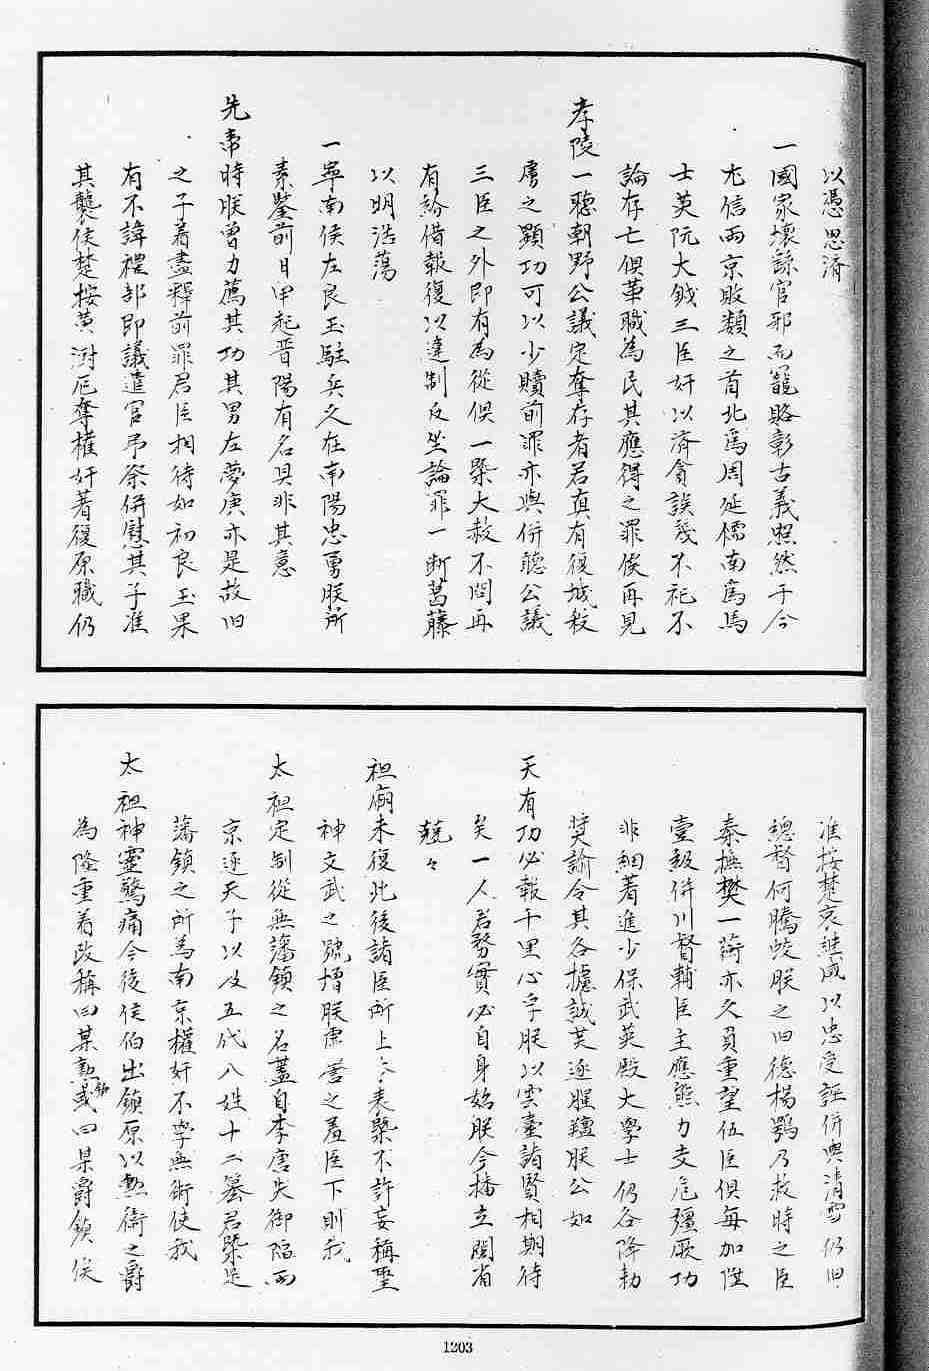 以憑思濟
一國家壞緣官邪而寵賂彰古義照然于今
尤信兩京敗類之首北爲周延儒南爲馬
士英阮大鋮三臣奸以濟貪誤幾不祀不
論存亡俱革職為民其應得之罪俟再見
孝陵一聽朝野公議定奪存者若真有復城殺
虜之顯功可以少贖前罪亦與併聽公議
三臣之外即有為從俱一槩大赦不問再
有紛借報復以違制反坐論罪一斷葛藤
以明浩蕩
一寧南侯左良玉駐兵久在南陽忠勇朕所
素鑒前日甲起晋陽有名具非其意
先帝時朕曾力薦其功其男左夢庚亦是故旧
之子着盡釋前罪君臣相待如初良玉果
有不諱禮部即議遣官弔祭併慰其子准
其襲侯楚按黄澍厄奪權奸著復原職仍
准按楚袁継咸以忠受誣併與清雪仍旧
總督何騰蛟朕之旧德楊鶚乃救時之臣
秦撫樊一蘅亦久負重望伍臣俱每加陞
壹級併川督輔臣王應熊力支危疆厥功
非細著進少保武英殿大學士仍各降勅
奨諭令其各攄誠芙逐腥羶朕公如
天有功必報千里心孚朕以雲臺諸賢相期待
矣一人君務實必自身始朕今播立閩省
兢々
祖廟未復此後諸臣所上々表槩不許妄稱聖
神文武之號增朕虛譽之羞臣下則我
太祖定制從無藩鎮之名蓋自李唐失御陷兩
京逐天子以及五代八姓十二簒君槩是
藩鎮之所為南京權奸不學無術使我
太祖神靈驚痛今後侯伯出鎮原以勲衛之爵
為隆重着改稱曰某勲鎮或曰某爵鎮俟
1203